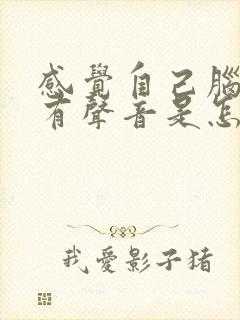 感覺自己腦
有聲音是怎
我愛影子猪